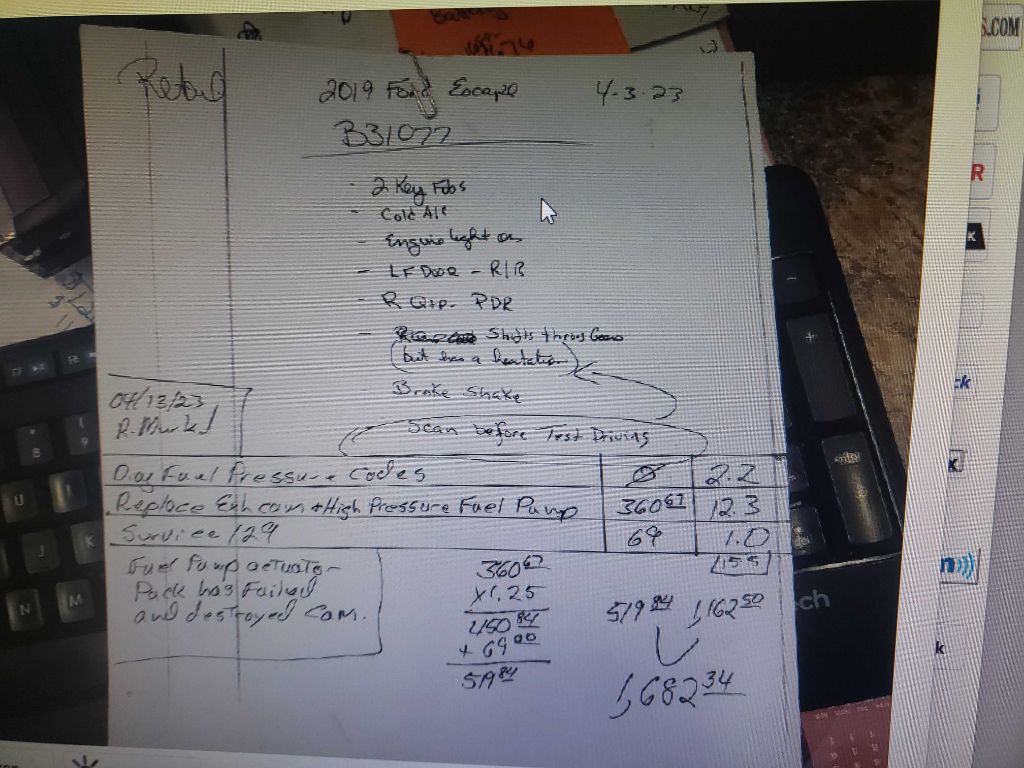 S.COM
Retail
2019 Ford Escape 4-3-23
B31077
- 2 Key Fobs
- Cold Air
- Engine light on
- LF Door - R/B
- R Qtp. PDR
- Shifts
(but has a
- Brake Shake
Scan before Test Driving
04/13/23
Diag Fuel Pressure Codes Ø 2.2
Replace Exh cam + High Pressure Fuel Pump 360 67 12.3
Survice /129 69 1.0
15.5
Fuel Pump actuator
Pack has Failed
and destroyed Cam.
360 67
x1.25
450 84
+ 69 00
519 84
519 84 1,162 50
1,682 34